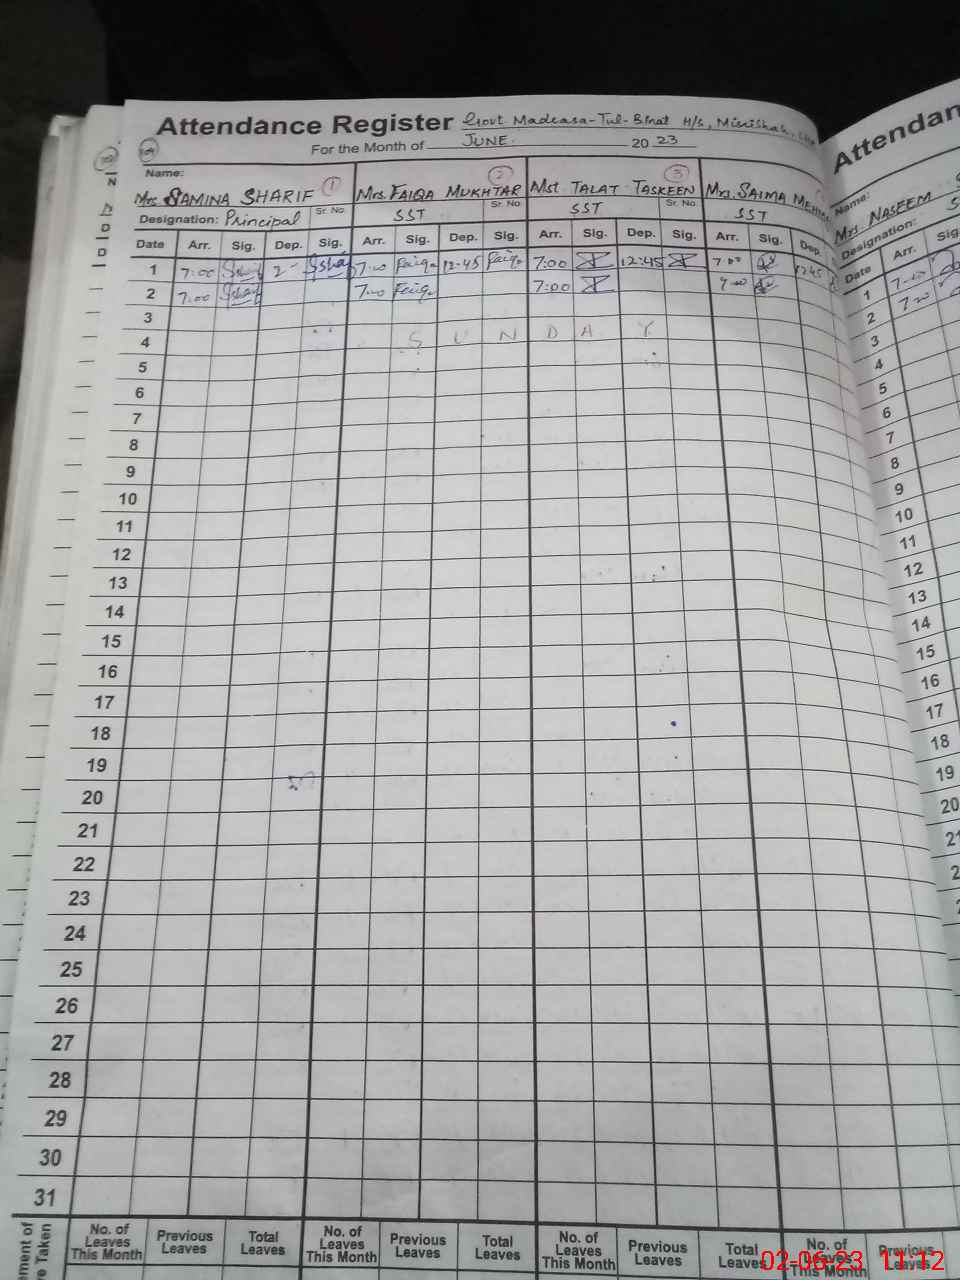 Attendance Register Govt. Madrasa-Tul-Binat H/S,
For the Month of JUNE 2023
Name:
Mrs SAMINA SHARIF 1 Mrs. FAIQA MUKHTAR 2 Mst. TALAT TASKEEN 3 Mrs. SAIMA
Designation: Principal Sr. No. SST Sr. No. SST Sr. No. SST
Date Arr. Sig. Dep. Sig. Arr. Sig. Dep. Sig. Arr. Sig. Dep. Sig. Arr. Sig. Dep.
1 7:00 2- 7:00 Faiqa 12:45 Faiqa 7:00 12:45 7:00 1245
2 7:00 7:00 Faiqa 7:00 7:00
3
4 S U N D A Y
5
6
7
8
9
10
11
12
13
14
15
16
17
18
19
20
21
22
23
24
25
26
27
28
29
30
31
No. of Leaves This Month Previous Leaves Total Leaves No. of Leaves This Month Previous Leaves Total Leaves No. of Leaves This Month Previous Leaves Total Leaves No. of Leaves This Month Previous Leaves
ement of
e Taken
Attendan
Name:
Mrs. NASEEM
Designation:
Date Arr. Sig.
1 7:00
2 7:00
3
4
5
6
7
8
9
10
11
12
13
14
15
16
17
18
19
20
02-06-23 11:12